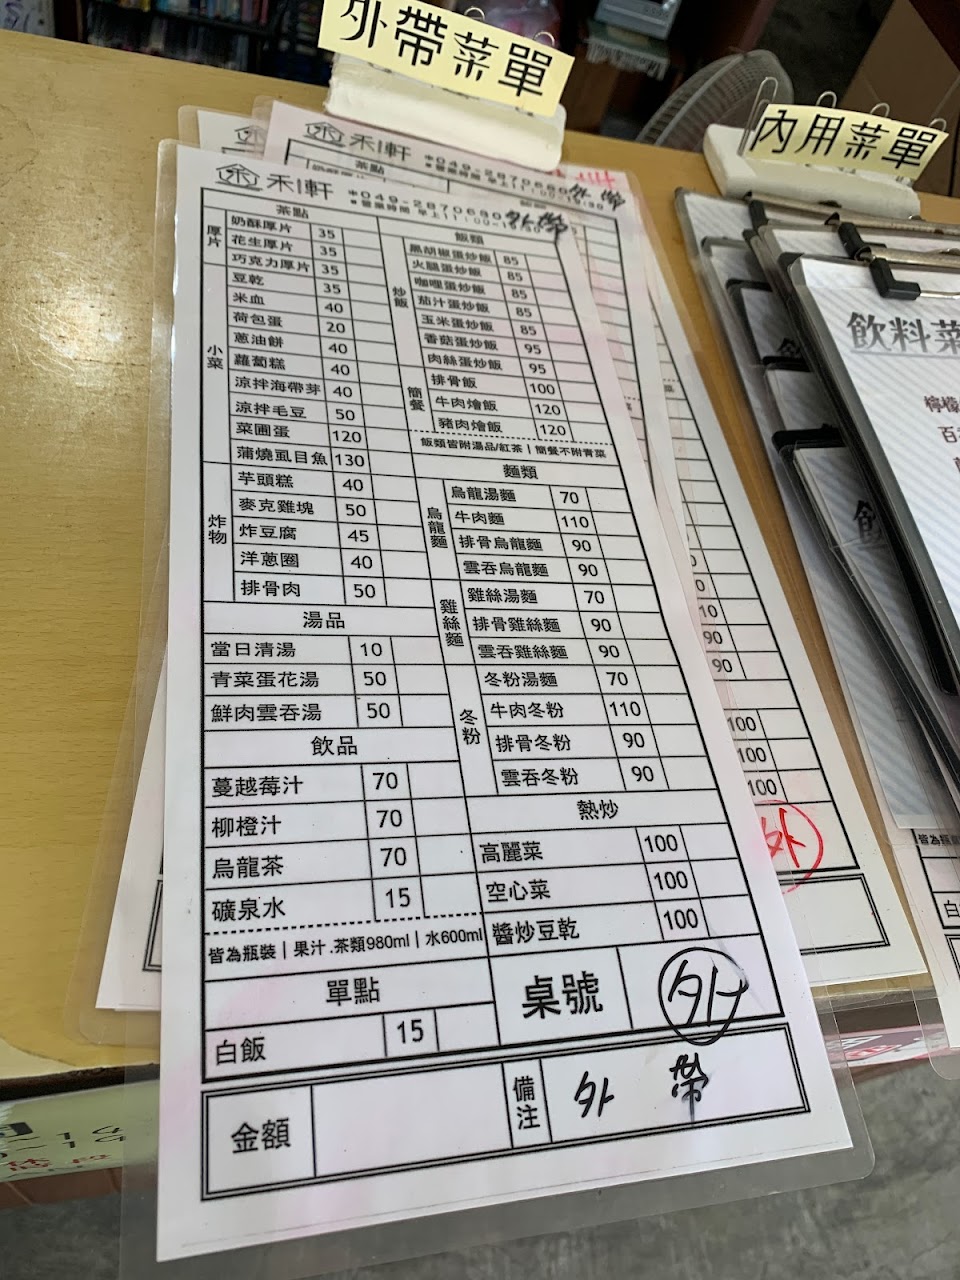 外帶菜單
內用菜單
禾軒
禾軒 *049-2870680 外帶
*營業時間 早上11:00-19:30
茶點
厚片
奶酥厚片 35
花生厚片 35
巧克力厚片 35
小菜
豆乾 35
米血 40
荷包蛋 20
蔥油餅 40
蘿蔔糕 40
涼拌海帶芽 40
涼拌毛豆 50
菜圃蛋 120
蒲燒虱目魚 130
炸物
芋頭糕 40
麥克雞塊 50
炸豆腐 45
洋蔥圈 40
排骨肉 50
湯品
當日清湯 10
青菜蛋花湯 50
鮮肉雲吞湯 50
飲品
蔓越莓汁 70
柳橙汁 70
烏龍茶 70
礦泉水 15
皆為瓶裝｜果汁.茶類980ml｜水600ml
單點
白飯 15
飯類
炒飯
黑胡椒蛋炒飯 85
火腿蛋炒飯 85
咖哩蛋炒飯 85
茄汁蛋炒飯 85
玉米蛋炒飯 85
香菇蛋炒飯 95
肉絲蛋炒飯 95
簡餐
排骨飯 100
牛肉燴飯 120
豬肉燴飯 120
飯類皆附湯品/紅茶｜簡餐不附青菜
麵類
烏龍麵
烏龍湯麵 70
牛肉麵 110
排骨烏龍麵 90
雲吞烏龍麵 90
雞絲麵
雞絲湯麵 70
排骨雞絲麵 90
雲吞雞絲麵 90
冬粉
冬粉湯麵 70
牛肉冬粉 110
排骨冬粉 90
雲吞冬粉 90
熱炒
高麗菜 100
空心菜 100
醬炒豆乾 100
桌號 外
金額
備注 外帶
90
90
100
100
100
外
飲料菜
檸檬
皆為瓶
白